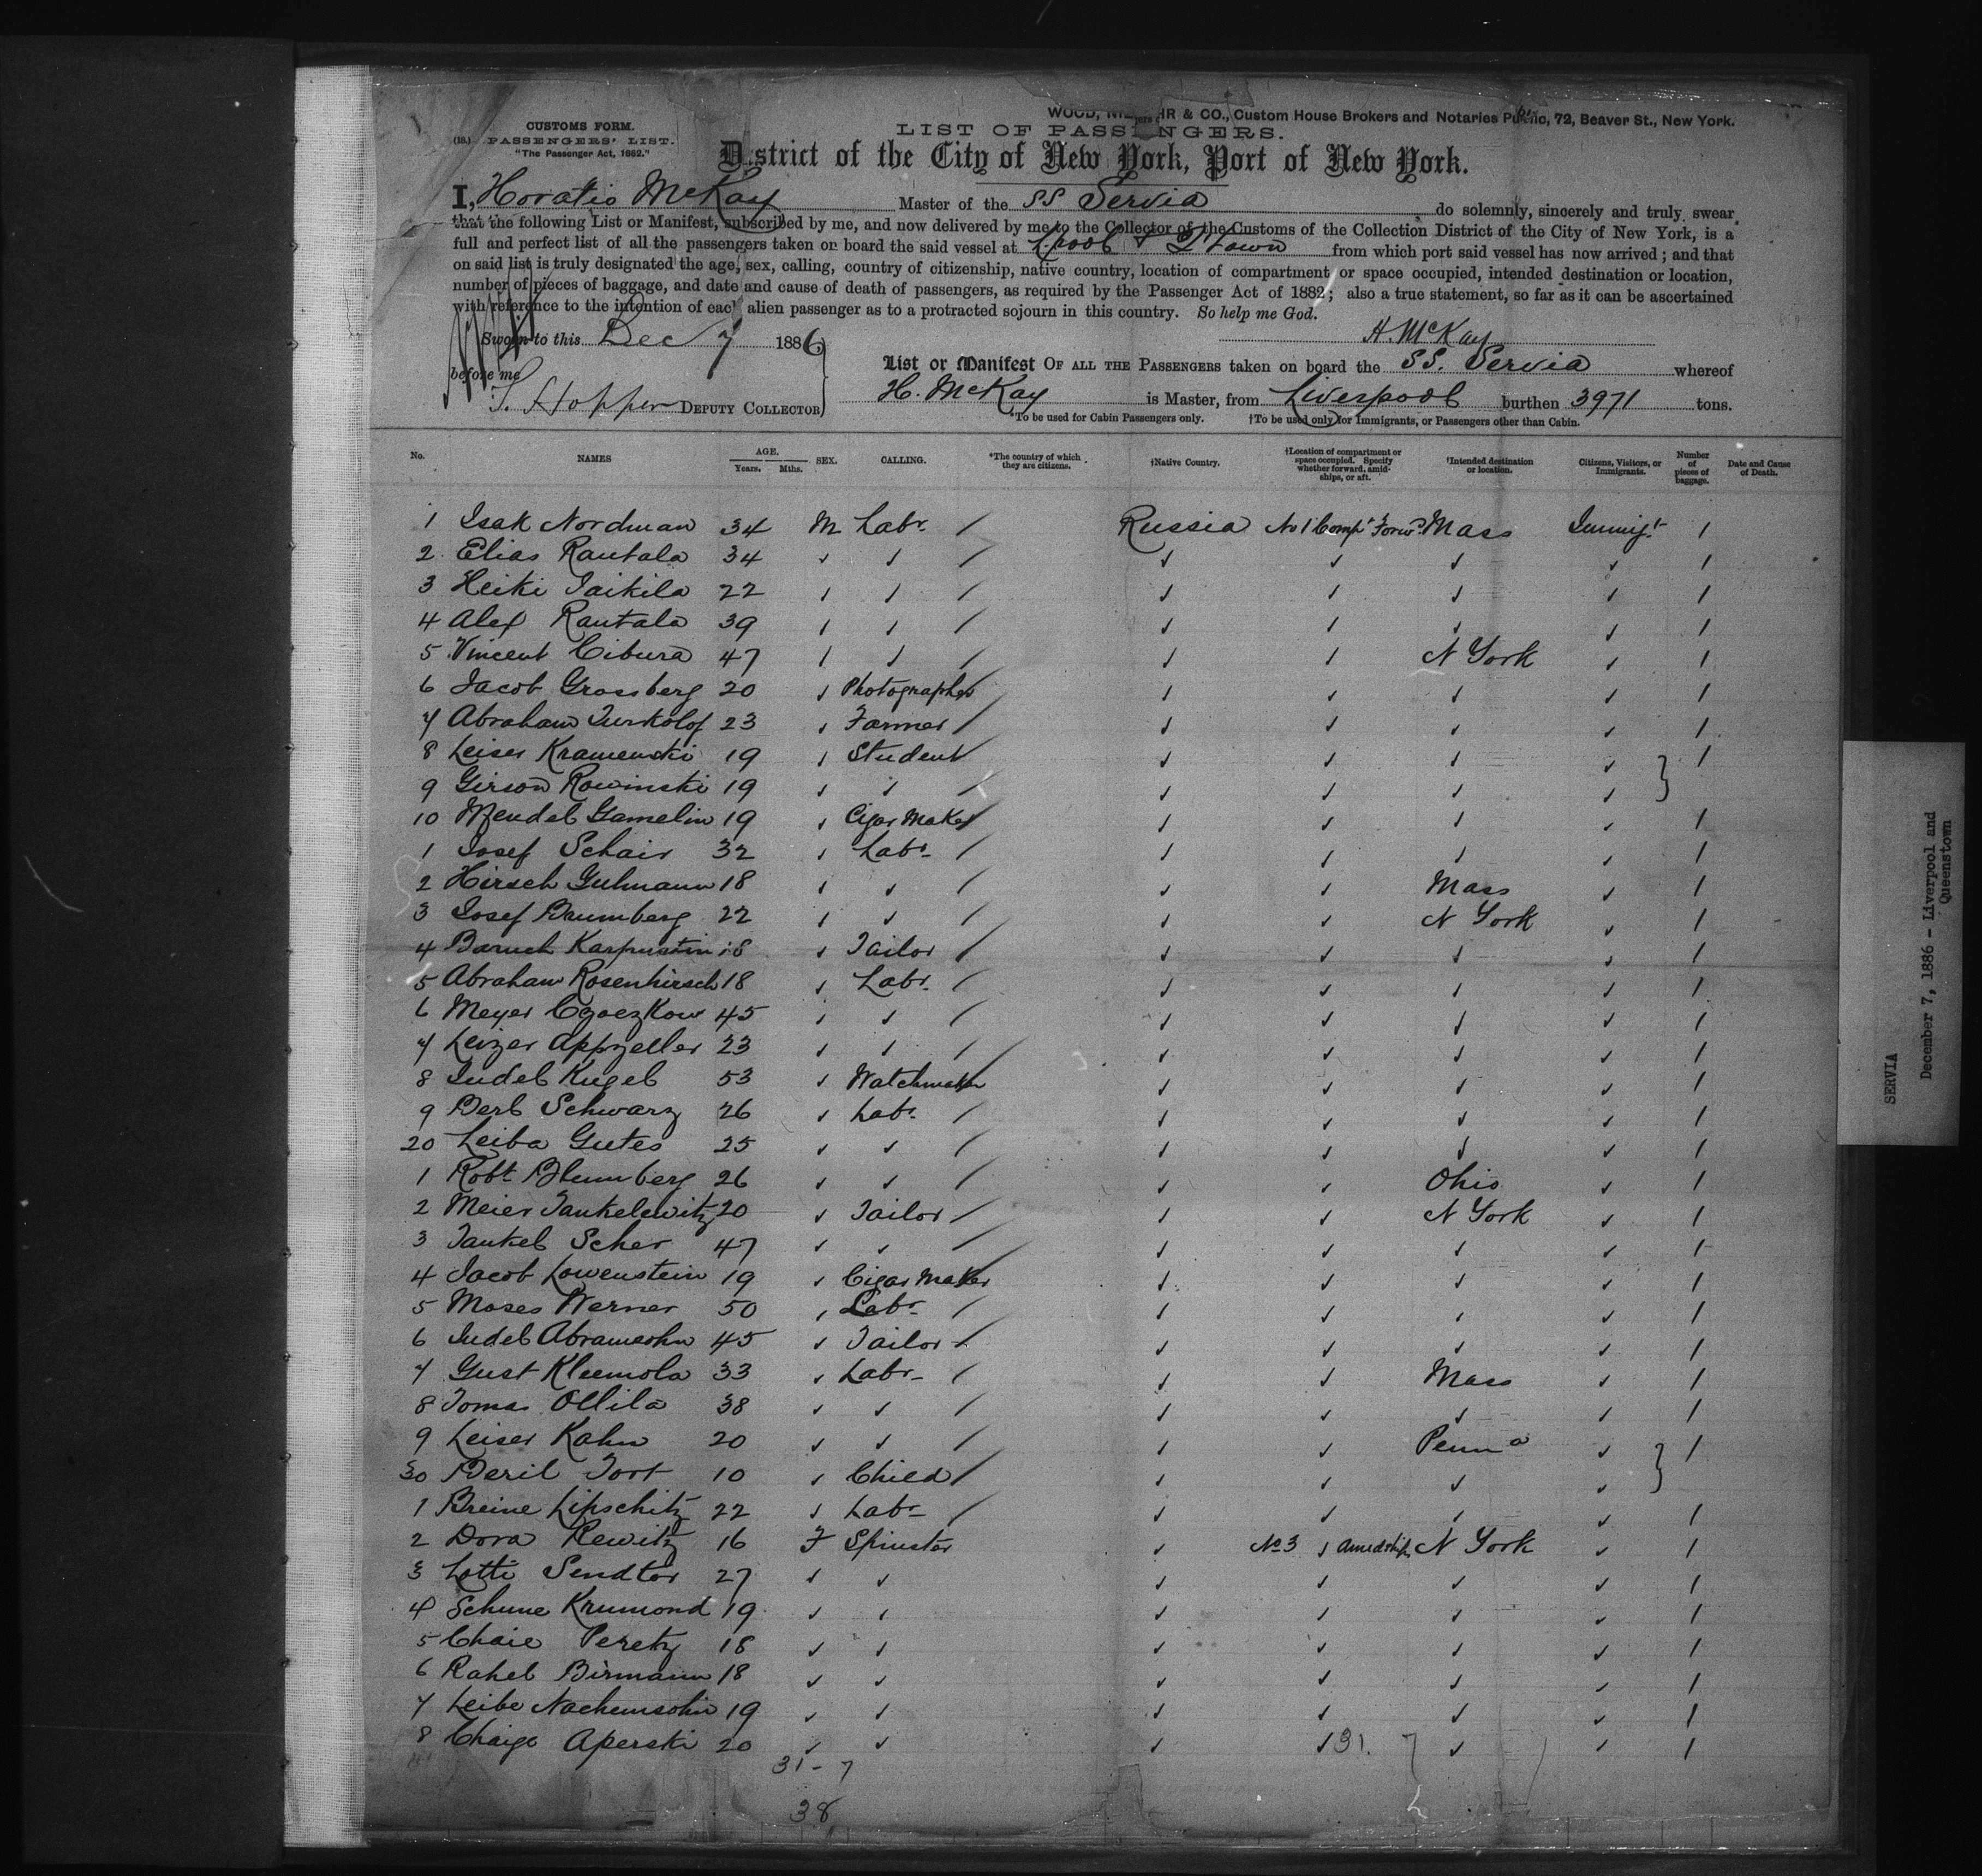 WOOD, NIEBUHR & CO., Custom House Brokers and Notaries Public, 72, Beaver St., New York.
CUSTOMS FORM.
(18.) PASSENGERS' LIST.
"The Passenger Act, 1882."
LIST OF PASSENGERS.
District of the City of New York, Port of New York.
I, Horatio McKay Master of the SS Servia do solemnly, sincerely and truly swear
that the following List or Manifest, subscribed by me, and now delivered by me to the Collector of the Customs of the Collection District of the City of New York, is a
full and perfect list of all the passengers taken on board the said vessel at L'pool & Q'town from which port said vessel has now arrived; and that
on said list is truly designated the age, sex, calling, country of citizenship, native country, location of compartment or space occupied, intended destination or location,
number of pieces of baggage, and date and cause of death of passengers, as required by the Passenger Act of 1882; also a true statement, so far as it can be ascertained
with reference to the intention of each alien passenger as to a protracted sojourn in this country. So help me God.
Sworn to this Dec 7 1886
H. McKay
before me
T. Hopper DEPUTY COLLECTOR
List or Manifest OF ALL THE PASSENGERS taken on board the SS. Servia whereof
H. McKay is Master, from Liverpool burthen 3971 tons.
*To be used for Cabin Passengers only. †To be used only for Immigrants, or Passengers other than Cabin.
No. NAMES AGE. Years. Mths. SEX. CALLING. *The country of which they are citizens. †Native Country. †Location of compartment or space occupied. Specify whether forward, amidships, or aft. †Intended destination or location. Citizens, Visitors, or Immigrants. Number of pieces of baggage. Date and Cause of Death.
1 Isak Nordman 34 M Labr. / Russia No 1 Compt Forwd. Mass Immigt. 1
2 Elias Rautala 34 ✓ ✓ / ✓ ✓ ✓ ✓ 1
3 Heiki Taikila 22 ✓ ✓ / ✓ ✓ ✓ ✓ 1
4 Alex Rautala 39 ✓ ✓ / ✓ ✓ ✓ ✓ 1
5 Vincent Cibura 47 ✓ ✓ / ✓ ✓ N York ✓ 1
6 Jacob Grossberg 20 ✓ Photographer / ✓ ✓ ✓ ✓ 1
7 Abraham Turkolof 23 ✓ Farmer / ✓ ✓ ✓ ✓ 1
8 Leiser Kramenski 19 ✓ Student / ✓ ✓ ✓ ✓ } 1
9 Girson Rowinski 19 ✓ ✓ / ✓ ✓ ✓ ✓
10 Mendel Gamelin 19 ✓ Cigar Maker / ✓ ✓ ✓ ✓ 1
1 Josef Schair 32 ✓ Labr. / ✓ ✓ ✓ ✓ 1
2 Hirsch Gulmann 18 ✓ ✓ / ✓ ✓ Mass ✓ 1
3 Josef Baumberg 22 ✓ ✓ / ✓ ✓ N York ✓ 1
4 Baruch Karpustin 18 ✓ Tailor / ✓ ✓ ✓ ✓ 1
5 Abraham Rosenhirsch 18 ✓ Labr. / ✓ ✓ ✓ ✓ 1
6 Meyer 45 ✓ ✓ / ✓ ✓ ✓ ✓ 1
7 Leizer Appzeller 23 ✓ ✓ / ✓ ✓ ✓ ✓ 1
8 Judel Kugel 53 ✓ Watchmaker / ✓ ✓ ✓ ✓ 1
9 Berl Schwarz 26 ✓ Labr. / ✓ ✓ ✓ ✓ 1
20 Leiba Gutes 25 ✓ ✓ / ✓ ✓ ✓ ✓ 1
1 Robt Blumberg 26 ✓ ✓ / ✓ ✓ Ohio ✓ 1
2 Meier Jankelewitz 20 ✓ Tailor / ✓ ✓ N York ✓ 1
3 Jankel Scher 47 ✓ ✓ / ✓ ✓ ✓ ✓ 1
4 Jacob Lowenstein 19 ✓ Cigar Maker / ✓ ✓ ✓ ✓ 1
5 Moses Werner 50 ✓ Labr. / ✓ ✓ ✓ ✓ 1
6 Judel Abramsohn 45 ✓ Tailor / ✓ ✓ ✓ ✓ 1
7 Gust Kleemola 33 ✓ Labr. / ✓ ✓ Mass ✓ 1
8 Tomas Ollila 38 ✓ ✓ / ✓ ✓ ✓ ✓ 1
9 Leiser Kahn 20 ✓ ✓ / ✓ ✓ Penna ✓ } 1
30 Beril Tort 10 ✓ Child / ✓ ✓ ✓ ✓
1 Breine Lipschitz 22 ✓ Labr / ✓ ✓ ✓ ✓ 1
2 Dora Rewitz 16 F Spinster ✓ No 3 ✓ Amidships N York ✓ 1
3 Lotti Sendtor 27 ✓ ✓ ✓ ✓ ✓ ✓ 1
4 Schune Krumond 19 ✓ ✓ ✓ ✓ ✓ ✓ 1
5 Chaie Peretz 18 ✓ ✓ ✓ ✓ ✓ ✓ 1
6 Rahel Birmann 18 ✓ ✓ ✓ ✓ ✓ ✓ 1
7 Leibe Nachemsohn 19 ✓ ✓ ✓ ✓ ✓ ✓ 1
8 Chaige Aperski 20 ✓ ✓ ✓ ✓ 31. 7 ✓ ✓ 1
31 - 7
38
SERVIA
December 7, 1886 - Liverpool and
Queenstown